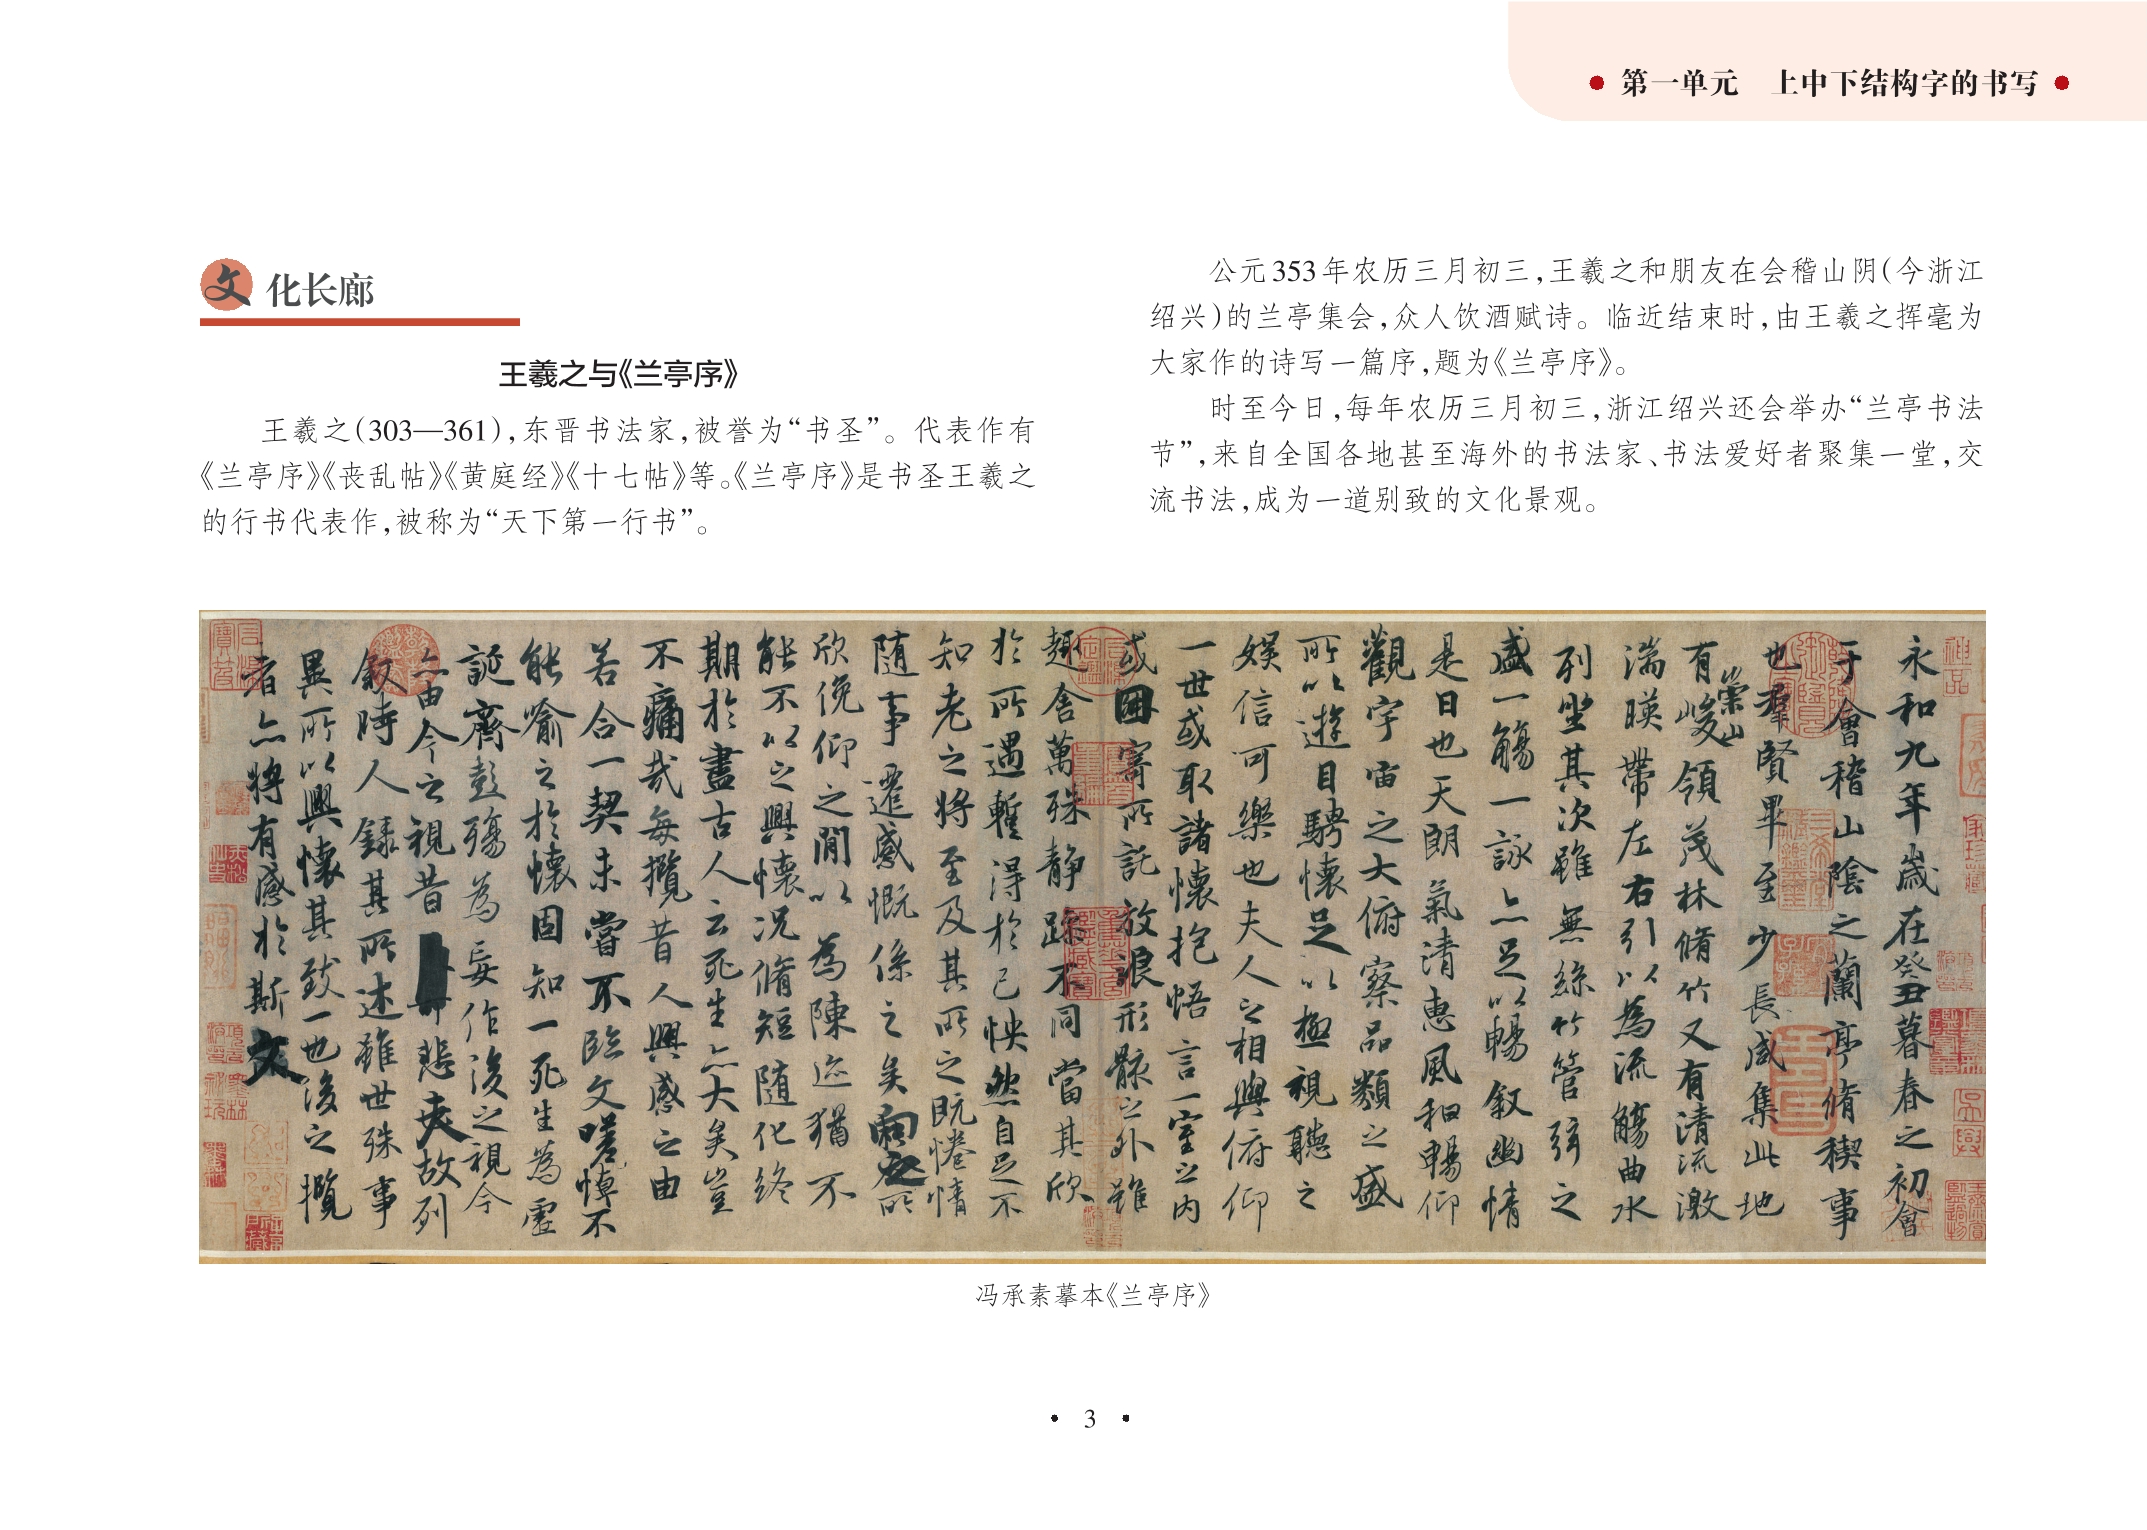 第一单元 上中下结构字的书写
文化长廊
王羲之与《兰亭序》
王羲之(303—361),东晋书法家,被誉为“书圣”。代表作有
《兰亭序》《丧乱帖》《黄庭经》《十七帖》等。《兰亭序》是书圣王羲之
的行书代表作,被称为“天下第一行书”。
公元353年农历三月初三,王羲之和朋友在会稽山阴(今浙江
绍兴)的兰亭集会,众人饮酒赋诗。临近结束时,由王羲之挥毫为
大家作的诗写一篇序,题为《兰亭序》。
时至今日,每年农历三月初三,浙江绍兴还会举办“兰亭书法
节”,来自全国各地甚至海外的书法家、书法爱好者聚集一堂,交
流书法,成为一道别致的文化景观。
永和九年歲在癸丑暮春之初會
于會稽山陰之蘭亭脩禊事
也羣賢畢至少長咸集此地
有崇山峻領茂林脩竹又有清流激
湍暎帶左右引以為流觴曲水
列坐其次雖無絲竹管弦之
盛一觴一詠亦足以暢敘幽情
是日也天朗氣清惠風和暢仰
觀宇宙之大俯察品類之盛
所以遊目騁懷足以極視聽之
娛信可樂也夫人之相與俯仰
一世或取諸懷抱悟言一室之內
或因寄所託放浪形骸之外雖
趣舍萬殊靜躁不同當其欣
於所遇暫得於己怏然自足不
知老之將至及其所之既惓情
隨事遷感慨係之矣向之所
欣俛仰之閒以為陳迹猶不
能不以之興懷況脩短隨化終
期於盡古人云死生亦大矣豈
不痛哉每攬昔人興感之由
若合一契未嘗不臨文嗟悼不
能喻之於懷固知一死生為虛
誕齊彭殤為妄作後之視今
亦由今之視昔悲夫故列
敘時人錄其所述雖世殊事
異所以興懷其致一也後之攬
者亦將有感於斯文
冯承素摹本《兰亭序》
3